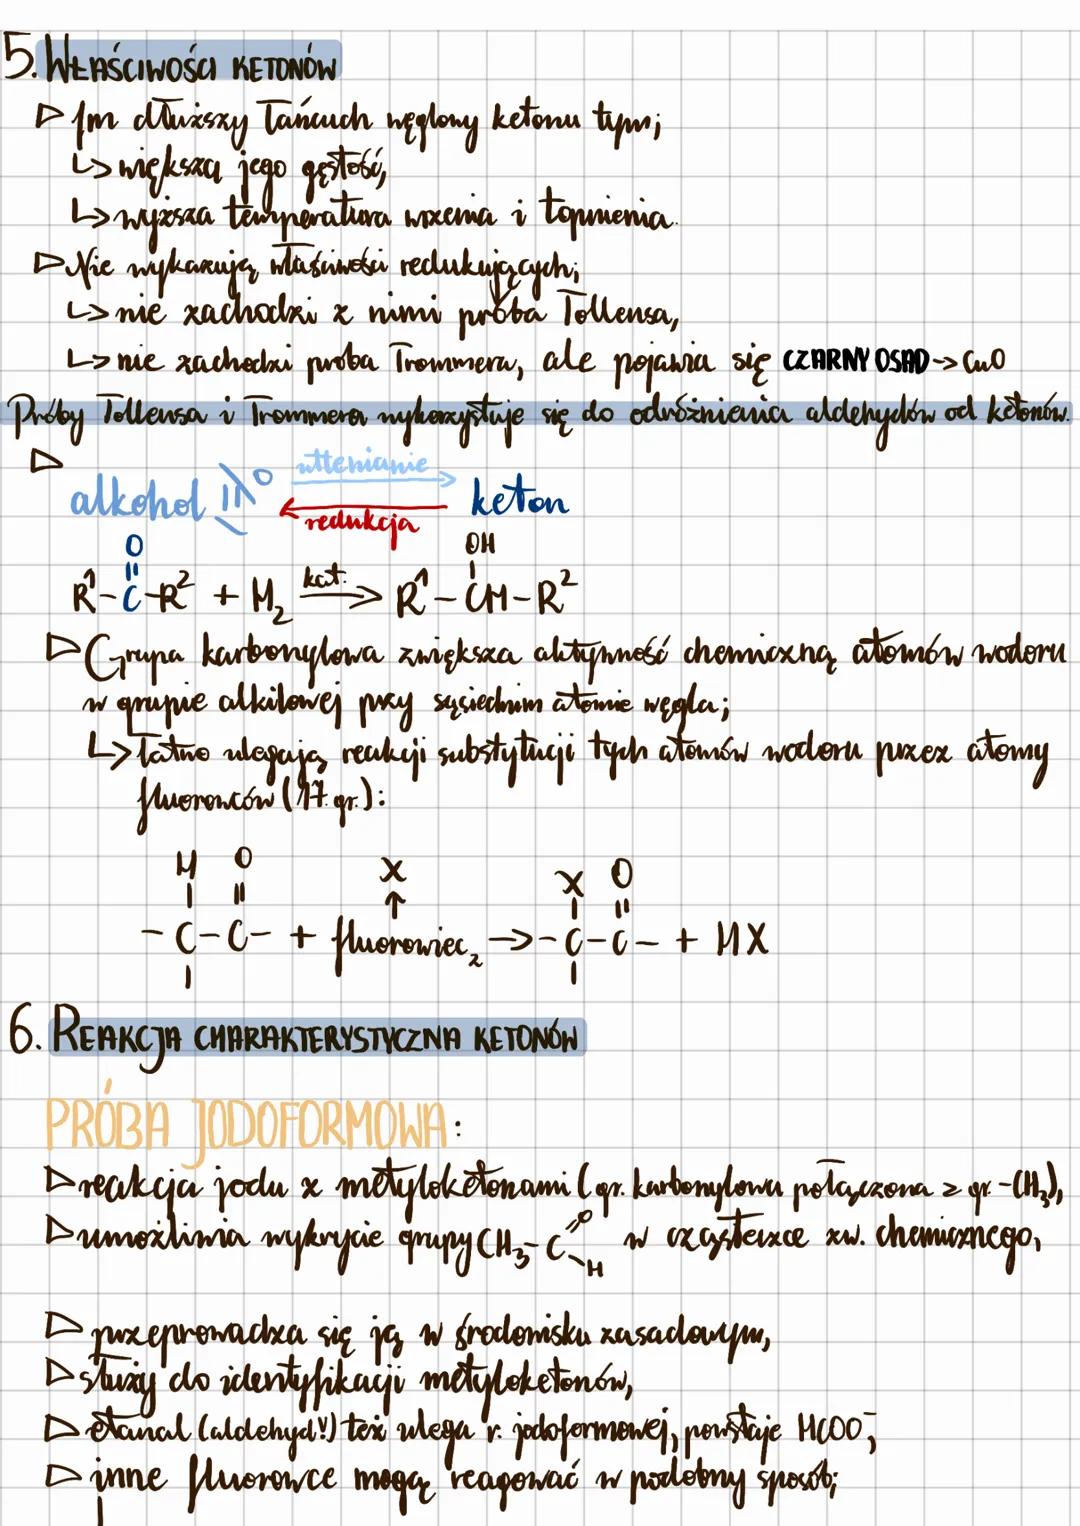 5. WŁAŚCIWOŚCI KETONÓW
▷ Im dłuższy łańcuch węglowy ketonu tym;
↳ większa jego gęstość,
↳ wyższa temperatura wrzenia i topnienia.
▷ Nie wykazują właściwości redukujących;
↳ nie zachodzi z nimi próba Tollensa,
↳ nie zachodzi próba Trommera, ale pojawia się CZARNY OSAD -> CuO
Próby Tollensa i Trommera wykorzystuje się do odróżnienia aldehydów od ketonów.
▷ utlenianie
alkohol II° keton
redukcja
O OH
R¹-C-R² + H₂ kat. → R¹-CH-R²
▷ Grupa karbonylowa zwiększa aktywność chemiczną atomów wodoru
w grupie alkilowej przy sąsiednim atomie węgla;
↳ łatwo ulegają reakcji substytucji tych atomów wodoru przez atomy
fluorowców (17. gr.):
H O X X O
-C-C- + fluorowiec₂ → -C-C- + HX
6. REAKCJA CHARAKTERYSTYCZNA KETONÓW
PRÓBA JODOFORMOWA:
▷ reakcja jodu z metyloketonami (gr. karbonylowa połączona z gr. -CH₃),
▷ umożliwia wykrycie grupy CH₃-C=O-H w cząsteczce zw. chemicznego,
▷ przeprowadza się ją w środowisku zasadowym,
▷ służy do identyfikacji metyloketonów,
▷ etanal (aldehyd!) też ulega r. jodoformowej, powstaje HCOO⁻;
▷ inne fluorowce mogą reagować w podobny sposób;